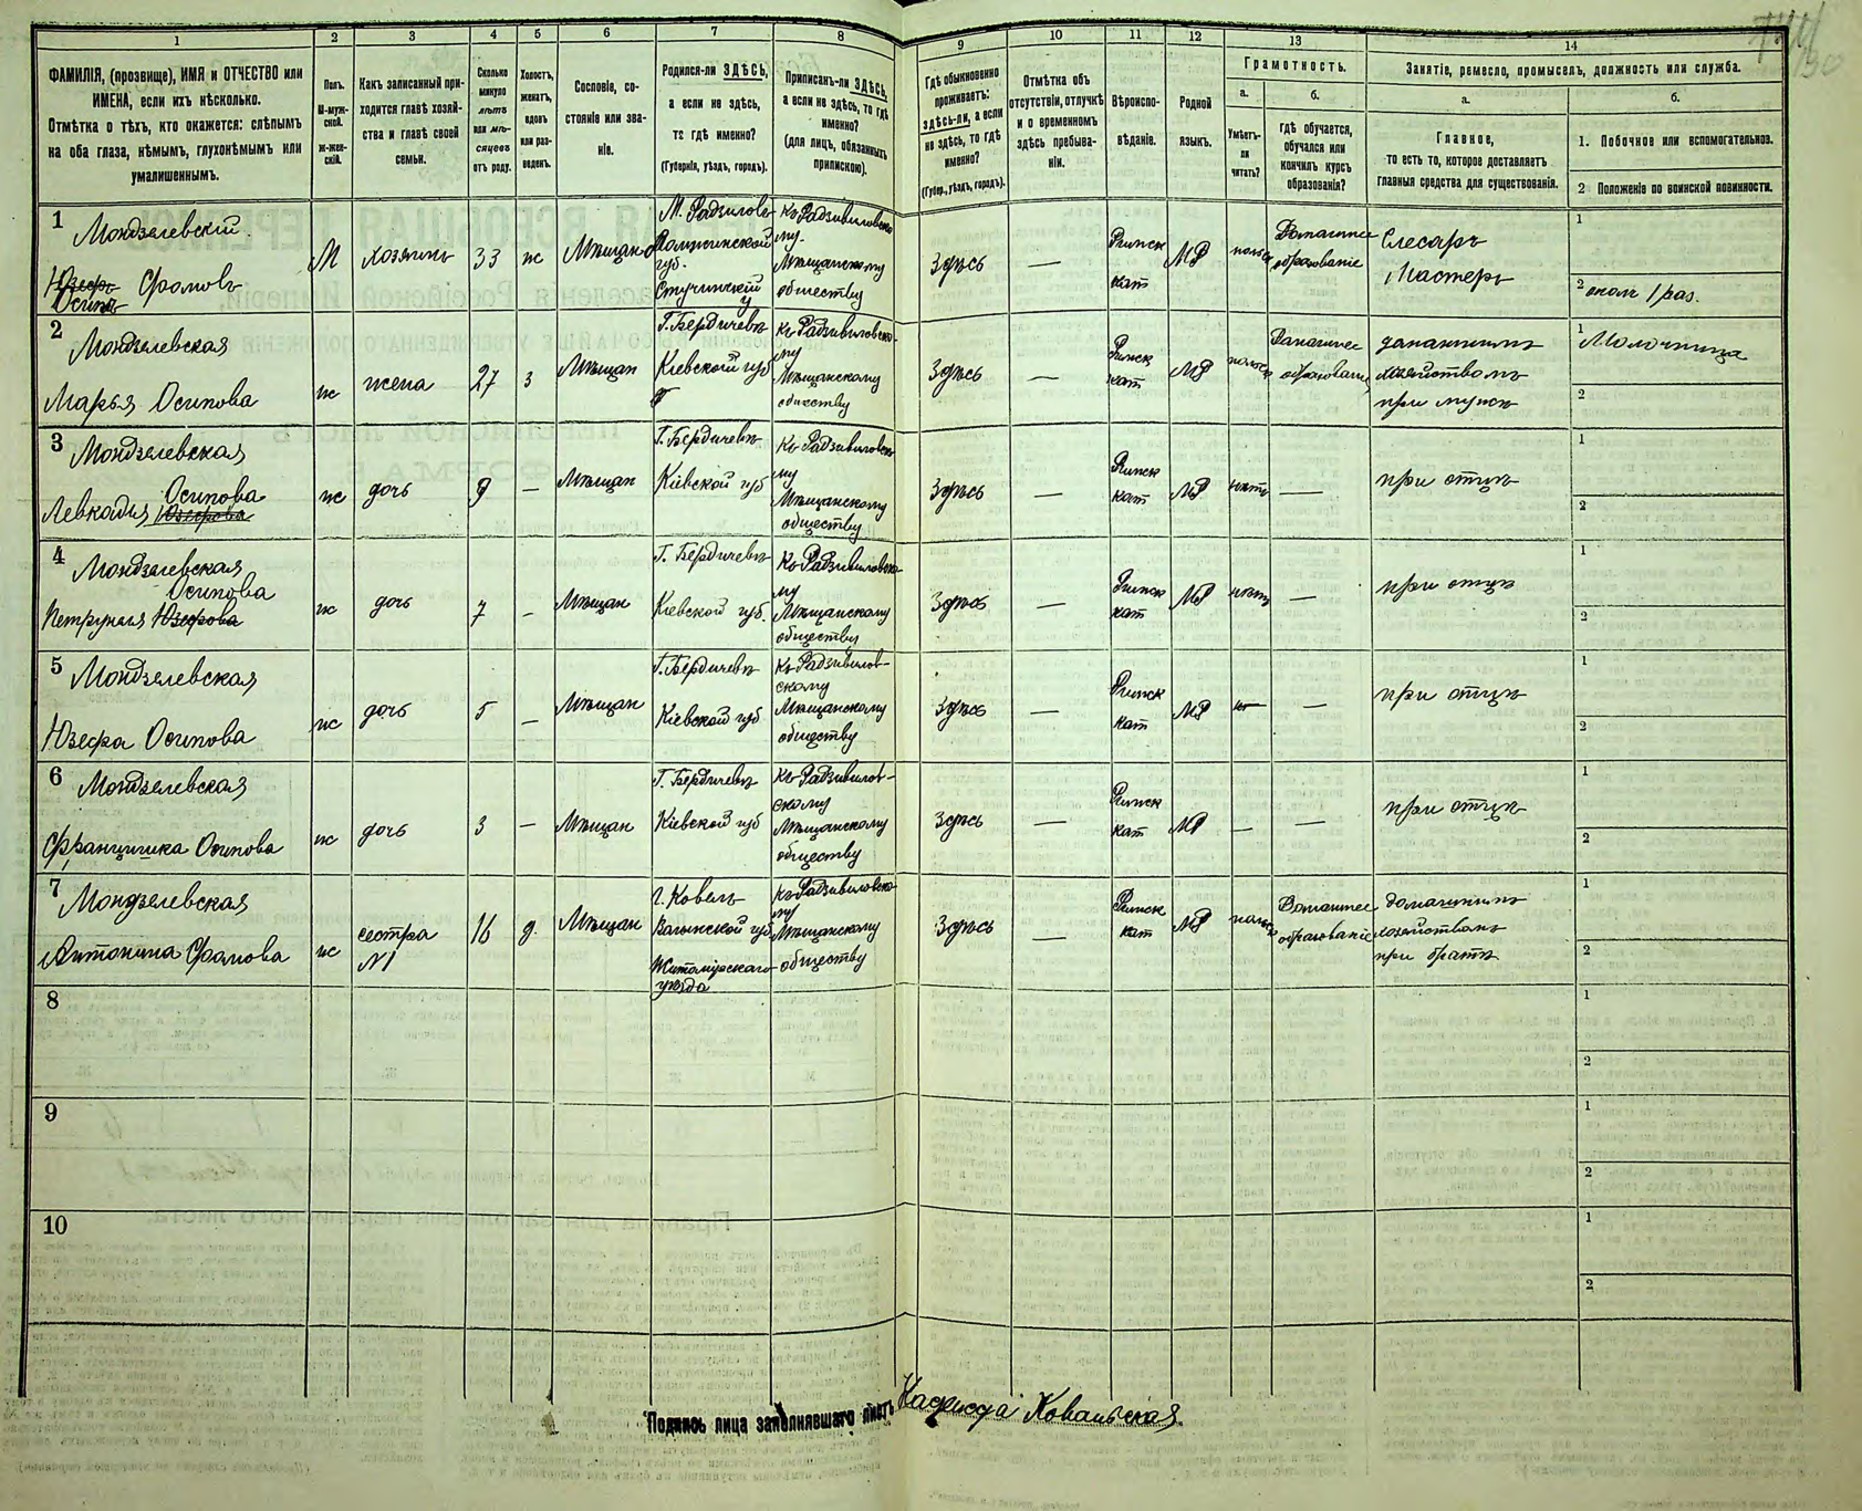 1
2
3
4
5
6
7
8
9
10
11
12
13
14
ФАМИЛІЯ, (прозвище), ИМЯ и ОТЧЕСТВО или
ИМЕНА, если ихъ нѣсколько.
Отмѣтка о тѣхъ, кто окажется: слѣпымъ
на оба глаза, нѣмымъ, глухонѣмымъ или
умалишеннымъ.
Полъ.
М-муж-
ской.
Ж-жен-
скій.
Какъ записанный при-
ходится главѣ хозяй-
ства и главѣ своей
семьи.
Сколько
минуло
лѣтъ
или мѣ-
сяцевъ
отъ роду.
Холостъ,
женатъ,
вдовъ
или раз-
веденъ.
Сословіе, со-
стояніе или зва-
ніе.
Родился-ли ЗДѢСЬ,
а если не здѣсь,
то гдѣ именно?
(Губернія, уѣздъ, городъ).
Приписанъ-ли ЗДѢСЬ,
а если не здѣсь, то гдѣ
именно?
(для лицъ, обязанныхъ
припискою).
Гдѣ обыкновенно
проживаетъ:
здѣсь-ли, а если
не здѣсь, то гдѣ
именно?
(Губер., уѣздъ, городъ).
Отмѣтка объ
отсутствіи, отлучкѣ
и о временномъ
здѣсь пребыва-
ніи.
Вѣроиспо-
вѣданіе.
Родной
языкъ.
Грамотность.
а.
Умѣетъ-
ли
читать?
б.
гдѣ обучается,
обучался или
кончилъ курсъ
образованія?
Занятіе, ремесло, промыселъ, должность или служба.
а.
Главное,
то есть то, которое доставляетъ
главныя средства для существованія.
б.
1. Побочное или вспомогательное.
2 Положеніе по воинской повинности.
1 Мондзелевскій
Юзефъ Фомовъ
Осипъ
М
хозяинъ
33
ж
Мѣщан
Ломжинской
губ.
къ Радзивиловско
му
Мѣщанскому
обществу
Здѣсь
—
Римск
кат
МР
Домашнее
образованіе
Слесарь
Мастеръ
1
2
2 Мондзелевская
Марья Осипова
ж
жена
27
з
Мѣщан
Г. Бердичевъ
Кіевской губ
къ Радзивиловско-
му
Мѣщанскому
обществу
Здѣсь
—
Римск
кат
МР
Домашнее
образованіе
домашнимъ
хозяйствомъ
при мужѣ
1 Молочница
2
3 Мондзелевская
Осипова
Левкадия Юзефова
ж
дочь
9
—
Мѣщан
Г. Бердичевъ
Кіевской губ
къ Радзивиловско
му
Мѣщанскому
обществу
Здѣсь
—
Римск
кат
МР
нѣтъ
—
при отцѣ
1
2
4 Мондзелевская
Осипова
Петрунеля Юзефова
ж
дочь
7
—
Мѣщан
Г. Бердичевъ
Кіевской губ.
къ Радзивиловско
му
Мѣщанскому
обществу
Здѣсь
—
Римск
кат
МР
нѣтъ
—
при отцѣ
1
2
5 Мондзелевская
Юзефа Осипова
ж
дочь
5
—
Мѣщан
Г. Бердичевъ
Кіевской губ
къ Радзивилов-
скому
Мѣщанскому
обществу
Здѣсь
—
Римск
кат
МР
—
при отцѣ
1
2
6 Мондзелевская
Францишка Осипова
ж
дочь
3
—
Мѣщан
Г. Бердичевъ
Кіевской губ
къ Радзивилов-
скому
Мѣщанскому
обществу
Здѣсь
—
Римск
кат
МР
—
—
при отцѣ
1
2
7 Мондзелевская
Антонина Фомова
ж
сестра
№1
16
д.
Мѣщан
г. Ковель
Волынской губ
Житомірскаго
уѣзда
къ Радзивиловско
му
Мѣщанскому
обществу
Здѣсь
—
Римск
кат
МР
Домашнее
образованіе
домашнимъ
хозяйствомъ
при братѣ
1
2
8
1
2
9
1
2
10
1
2
Подпись лица заполнявшаго листъ Ковальская